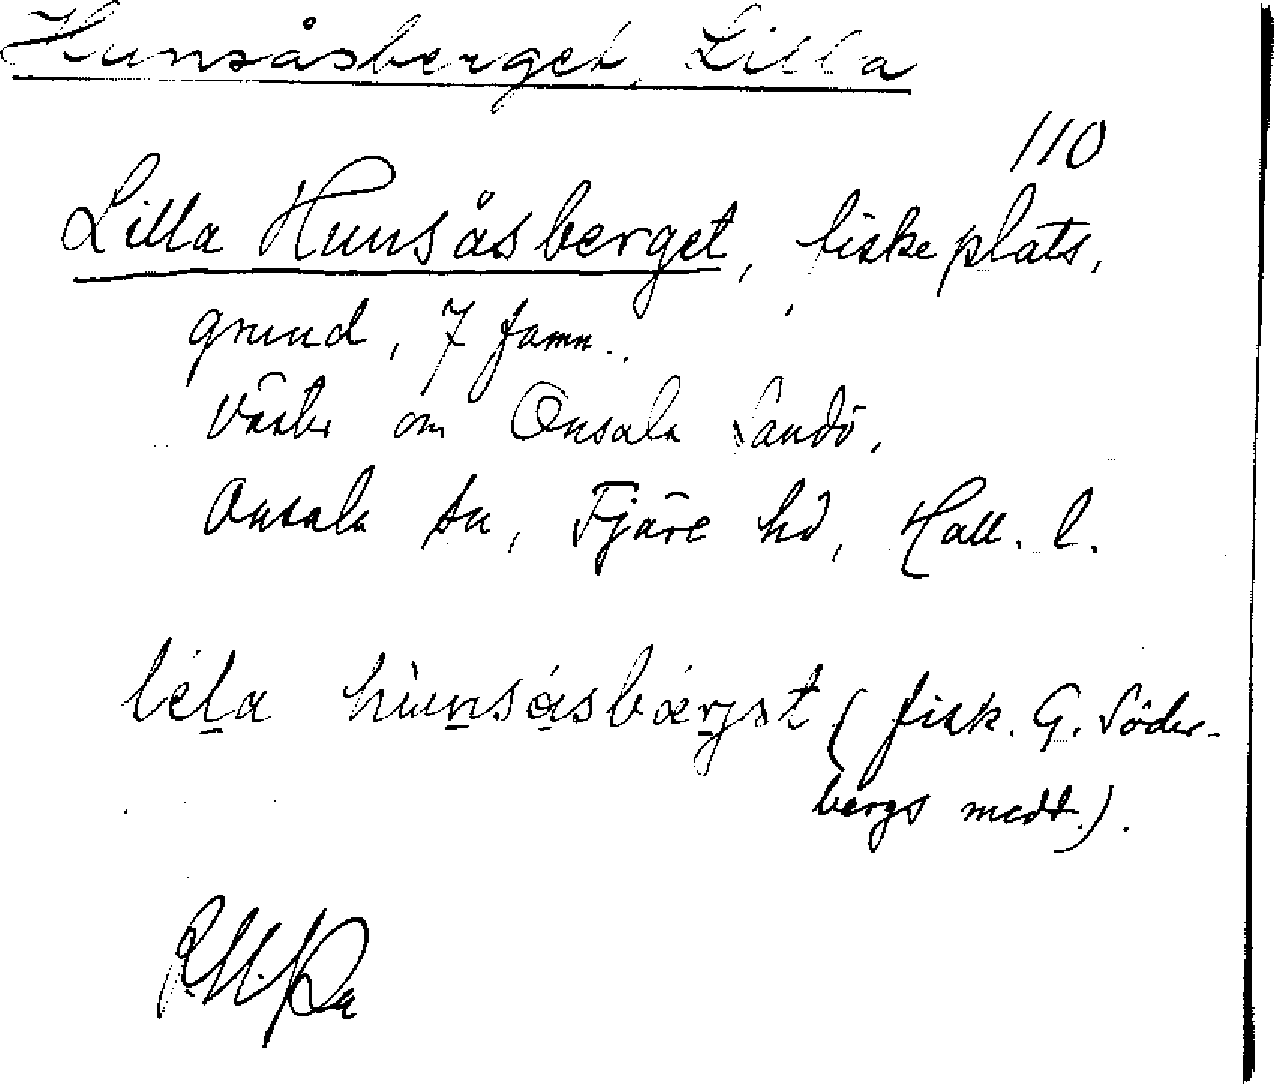 Hunsåsberget, Lilla
110
Lilla Hunsåsberget, fiskeplats,
grund, 7 famn.
Väster om Onsala Sandö.
Onsala sn, Fjäre hd, Hall. l.
(fisk. G. Söder-
bergs medd.).